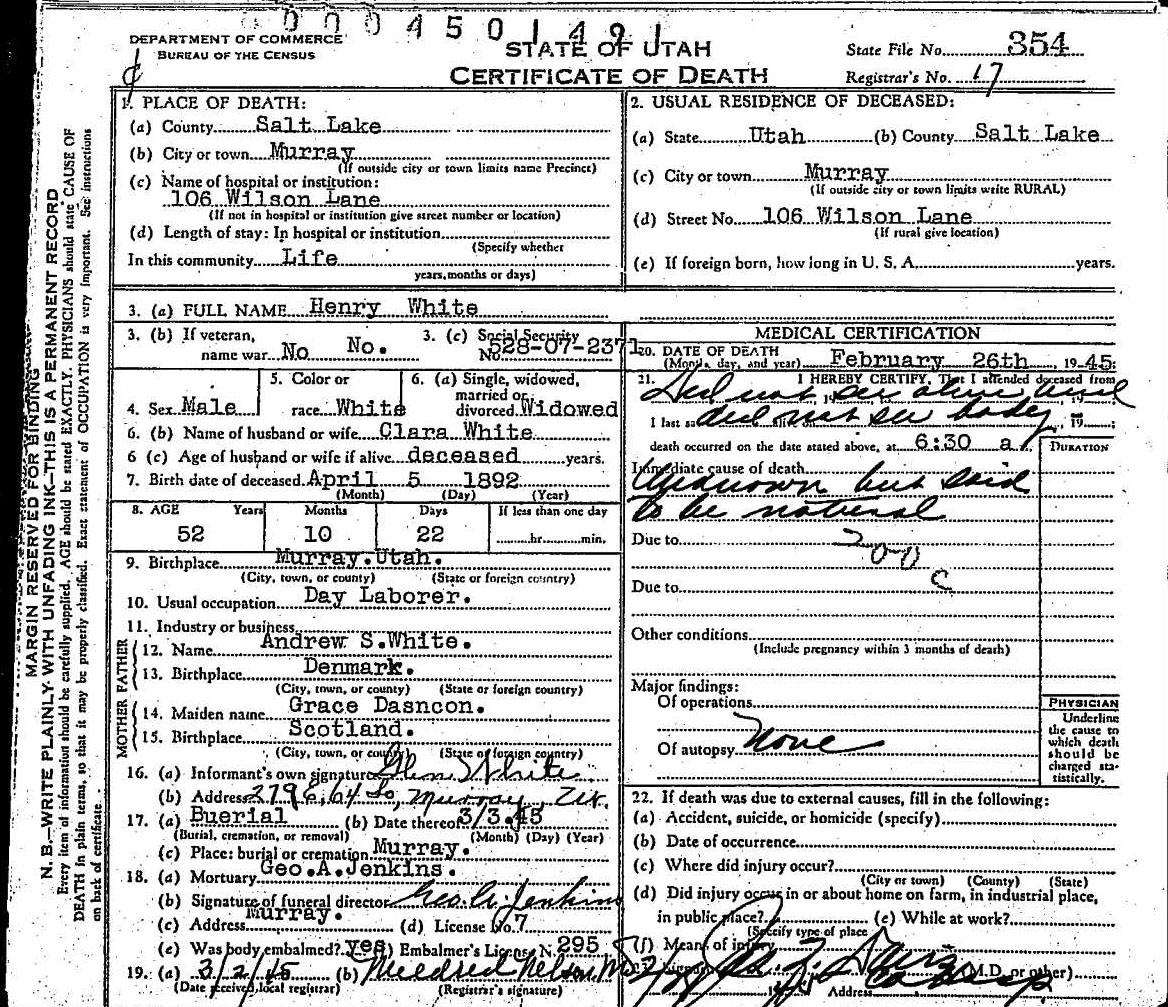 000450149
DEPARTMENT OF COMMERCE
BUREAU OF THE CENSUS
STATE OF UTAH
CERTIFICATE OF DEATH
State File No. 354
Registrar's No. 17
MARGIN RESERVED FOR BINDING
N. B.—WRITE PLAINLY WITH UNFADING INK—THIS IS A PERMANENT RECORD
Every item of information should be carefully supplied. AGE should be stated EXACTLY. PHYSICIANS should state CAUSE OF
DEATH in plain terms, so that it may be properly classified. Exact statement of OCCUPATION is very important. See instructions
on back of certificate.
1. PLACE OF DEATH:
(a) County Salt Lake
(b) City or town Murray
(If outside city or town limits name Precinct)
(c) Name of hospital or institution:
106 Wilson Lane
(If not in hospital or institution give street number or location)
(d) Length of stay: In hospital or institution
(Specify whether
In this community Life
years, months or days)
2. USUAL RESIDENCE OF DECEASED:
(a) State Utah (b) County Salt Lake
(c) City or town Murray
(If outside city or town limits write RURAL)
(d) Street No. 106 Wilson Lane
(If rural give location)
(e) If foreign born, how long in U. S. A. years.
3. (a) FULL NAME Henry White
3. (b) If veteran,
name war No No.
3. (c) Social Security
No. 528-07-2371
4. Sex Male
5. Color or
race White
6. (a) Single, widowed,
married or
divorced Widowed
6. (b) Name of husband or wife Clara White
6 (c) Age of husband or wife if alive deceased years.
7. Birth date of deceased April 5 1892
(Month) (Day) (Year)
8. AGE Years Months Days If less than one day
52 10 22 hr. min.
9. Birthplace Murray.Utah.
(City, town, or county) (State or foreign country)
10. Usual occupation Day Laborer.
11. Industry or business
FATHER
12. Name Andrew S.White.
13. Birthplace Denmark.
(City, town, or county) (State or foreign country)
MOTHER
14. Maiden name Grace Dasncon.
15. Birthplace Scotland.
(City, town, or county) (State or foreign country)
16. (a) Informant's own signature Glen White
(b) Address 279 E, 64 So, Murray, Ut.
17. (a) Buerial (b) Date thereof 3/3.45
(Burial, cremation, or removal) (Month) (Day) (Year)
(c) Place: burial or cremation Murray.
18. (a) Mortuary Geo.A.Jenkins.
(b) Signature of funeral director Geo. A. Jenkins
(c) Address Murray. (d) License No. 7
(e) Was body embalmed? yes Embalmer's License N. 295
19. (a) 3/2/45 (b) Mildred Nelson
(Date received, local registrar) (Registrar's signature)
MEDICAL CERTIFICATION
20. DATE OF DEATH
(Month, day, and year) February 26th 1945
21. I HEREBY CERTIFY, That I attended deceased from
Did not see alive and
I last sa did not see body , 19
death occurred on the date stated above, at 6:30 a
DURATION
Immediate cause of death
Unknown but said
to be natural
Due to
200
c
Due to
Other conditions
(Include pregnancy within 3 months of death)
Major findings:
Of operations
Of autopsy None
PHYSICIAN
Underline
the cause to
which death
should be
charged sta-
tistically.
22. If death was due to external causes, fill in the following:
(a) Accident, suicide, or homicide (specify)
(b) Date of occurrence
(c) Where did injury occur?
(City or town) (County) (State)
(d) Did injury occur in or about home on farm, in industrial place,
in public place? (e) While at work?
(Specify type of place
(f) Means of injury
(M.D. or other)
Address